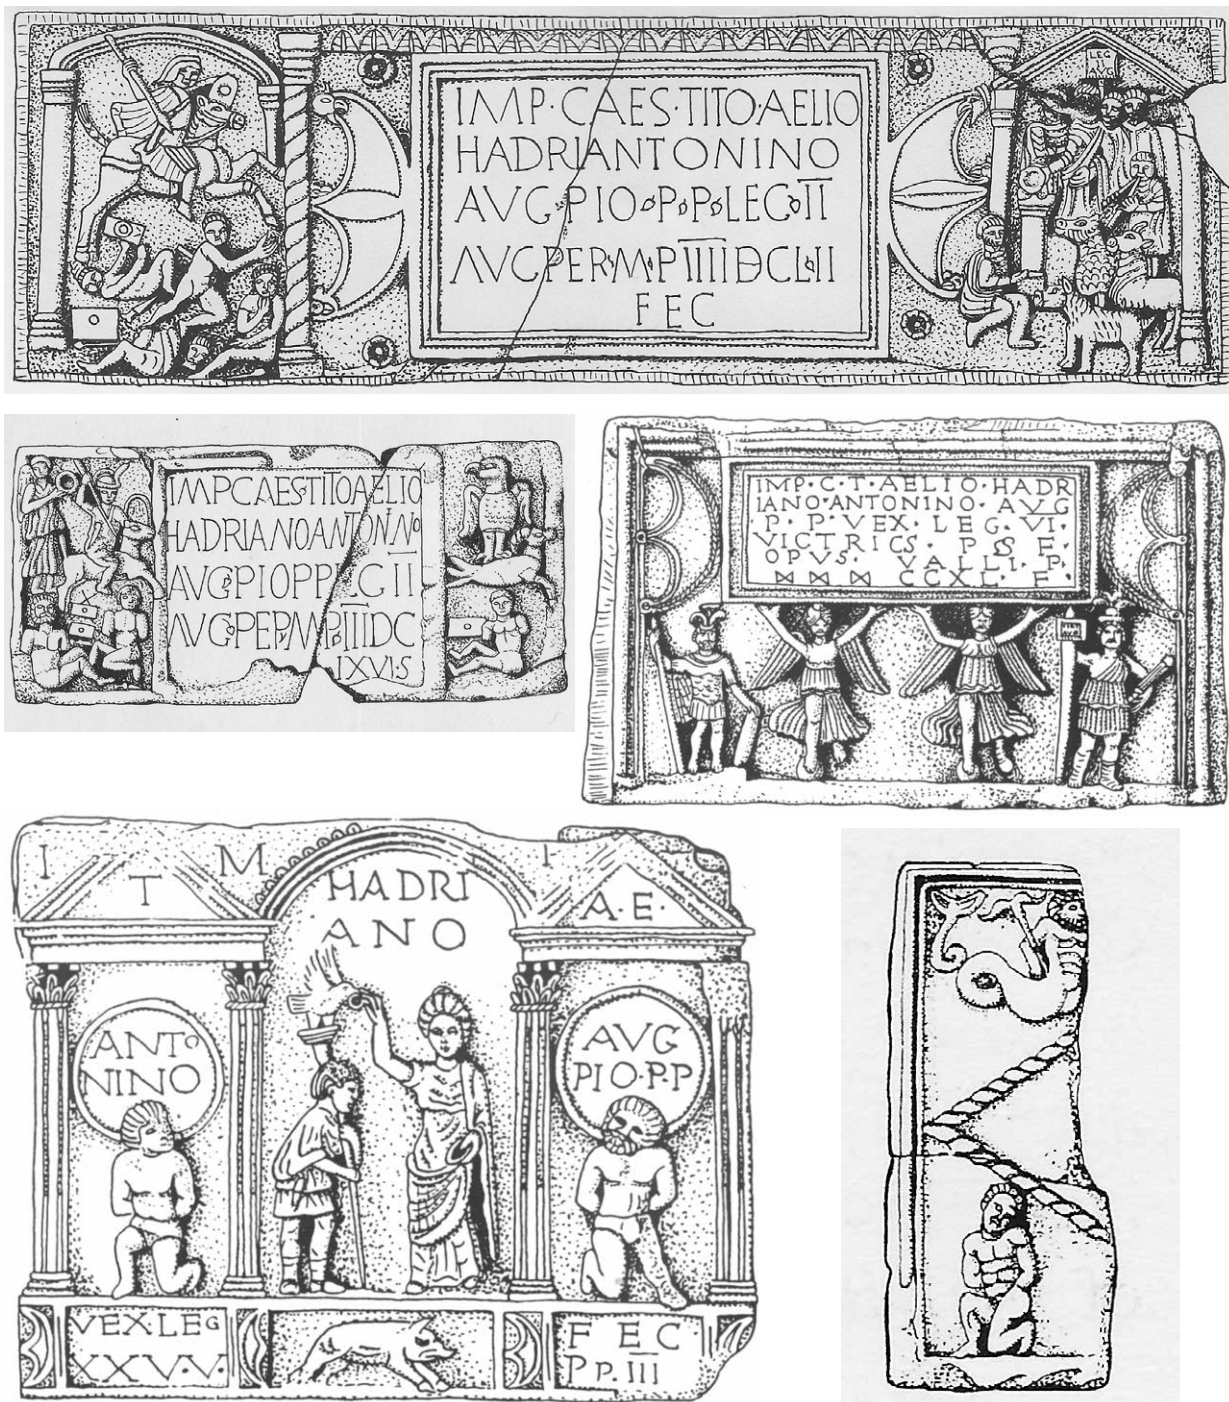 IMP·CAES·TITO·AELIO
HADRIANTONINO
AVG·PIO·P·P·LEG·II
AVG PER·M·P IIII DCLII
FEC
IMPCAES·TITOAELIO
HADRIANOANTONINO
AVG·PIOPPLEGII
AVG·PER·M·P·IIIDC
LXVI·S
IMP·C·T·AELIO·HADR
IANO·ANTONINO·AVG
P·P·VEX·LEG·VI·
VICTRICS·P·F·
OPVS·VALLI·P·
CCXL·F·
I M I
T A·E·
HADRI
ANO
ANTO
NINO
AVG
PIO·P·P
VEXLEG
XXV·V·
FEC·
PP·III